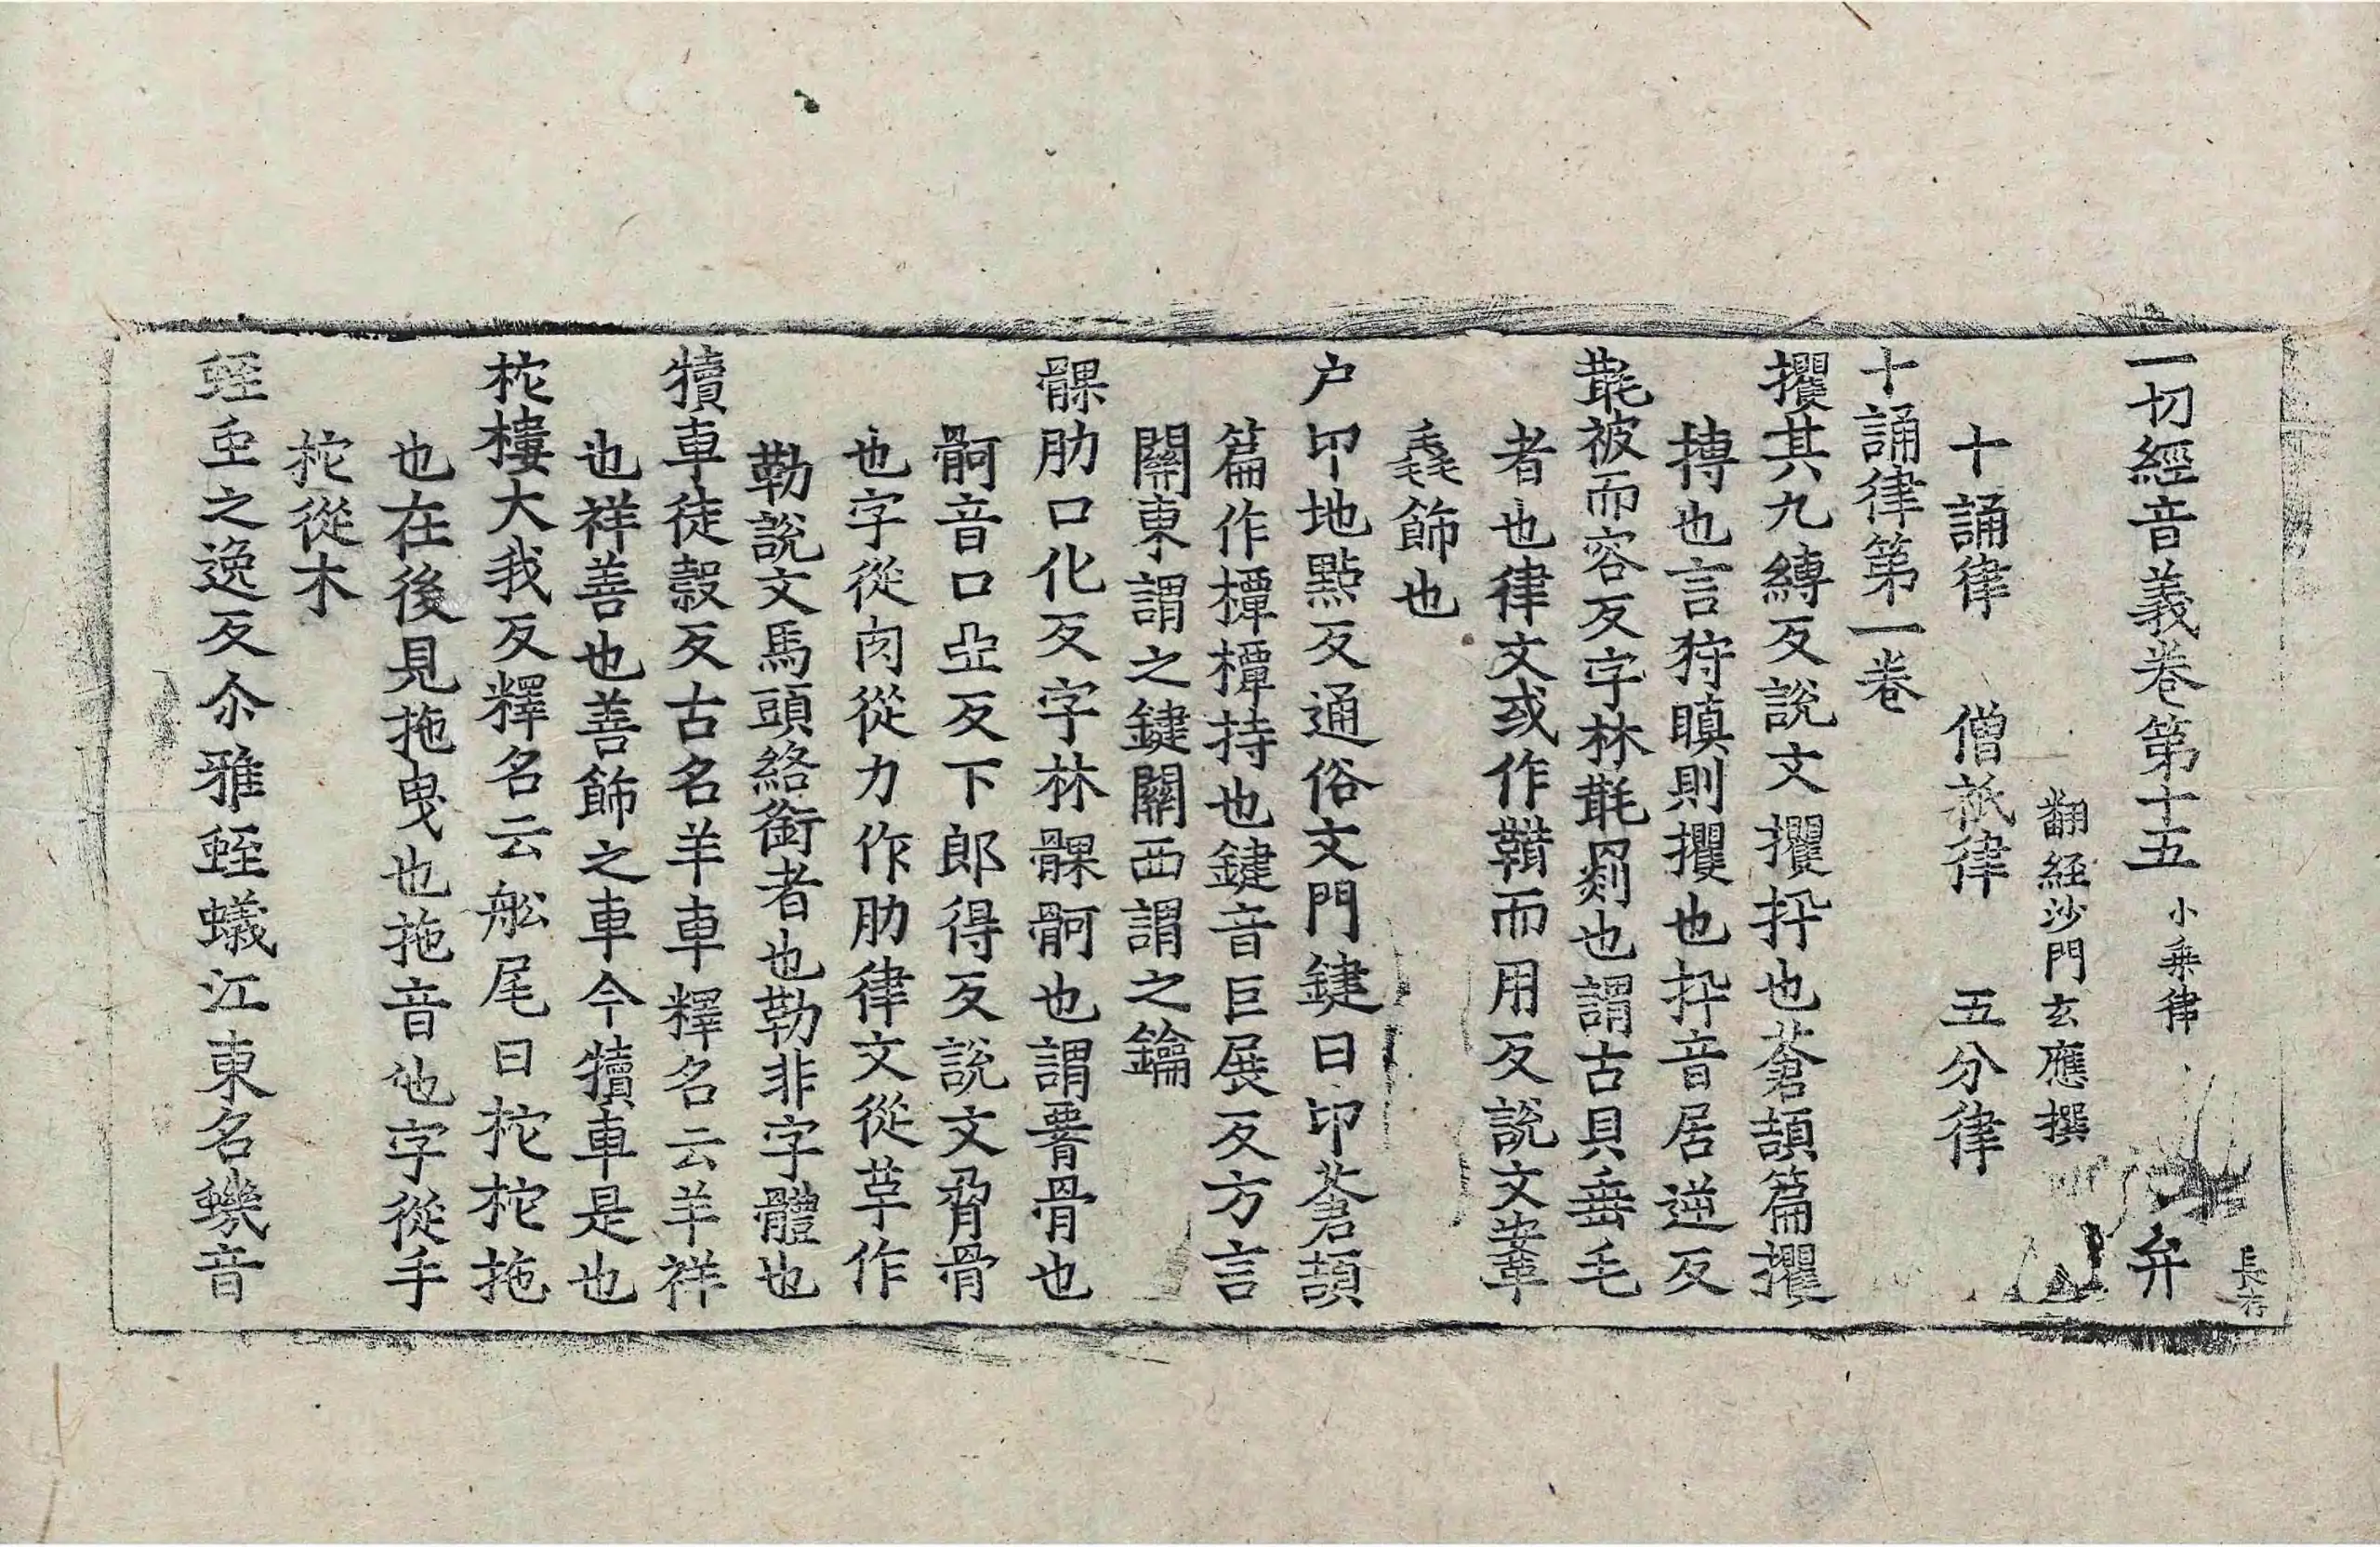 長存
一切經音義卷第十五 小乗律 弁
翻經沙門玄應撰
十誦律 僧祇律 五分律
十誦律第一卷
攫其九縛反說文攫扞也蒼頡篇攫
搏也言狩瞋則攫也扞音居逆反
氀被而容反字林氀罽也謂古貝垂毛
者也律文或作鞲而用反說文安革
毳飾也
户印地點反通俗文門鍵曰印蒼頡
篇作橝橝持也鍵音巨展反方言
關東謂之鍵關西謂之鑰
髁肋口化反字林髁骻也謂𦝫骨也
骻音口亞反下郎得反說文脅骨
也字從肉從力作肋律文從革作
勒說文馬頭絡銜者也勒非字體也
犢車徒穀反古名羊車釋名云羊祥
也祥善也善飾之車今犢車是也
柁樓大我反釋名云舩尾曰柁柁拖
也在後見拖曳也拖音他字從手
柁從木
蛭虫之逸反尒雅蛭蟣江東名蟣音